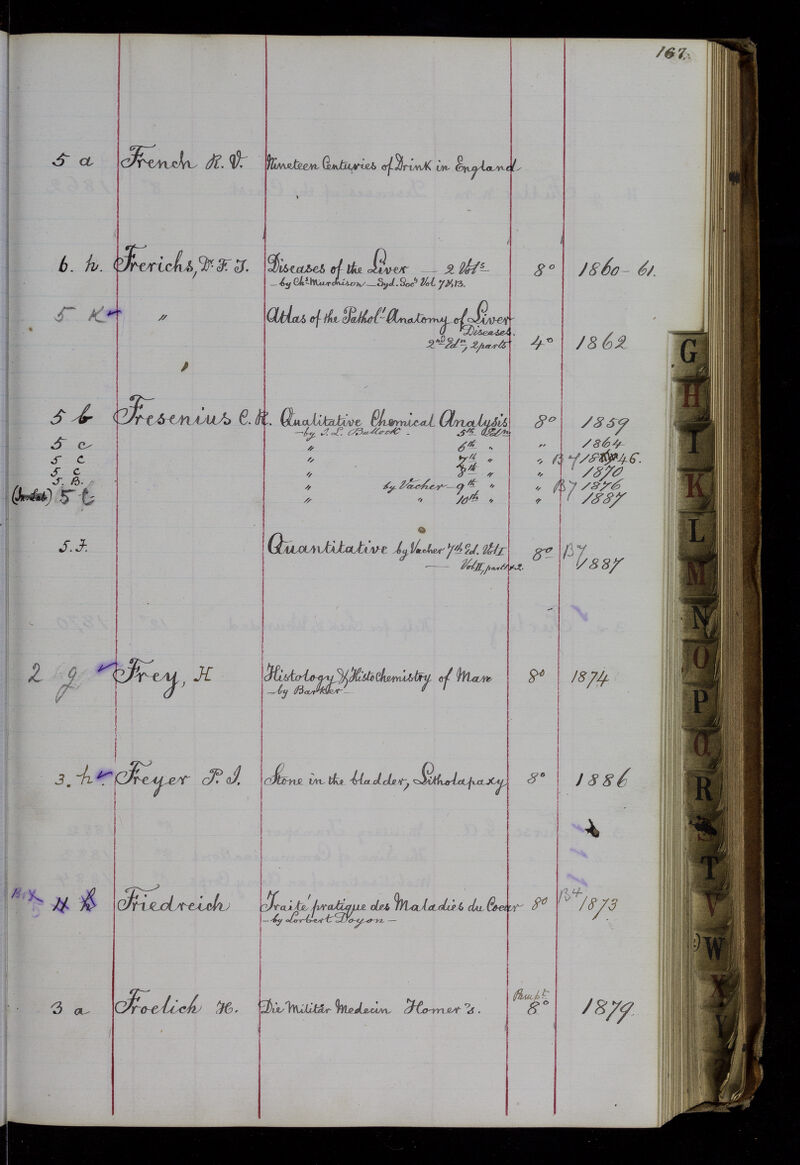 167.
5 a French R. V. Nineteen Centuries of Drink in England
6. h. Frerichs, Dr. F. T. Diseases of the Liver — 2 Vols 8° 1860-61.
— by Chs Murchison — Syd. Socy Vol 7 & 13.
5 K " Atlas of the Pathol! Anatomy of Liver
Diseases.
2nd Edn, 2 parts 4° 1862
5 b Fresenius C. R. Qualitative Chemical Analysis 8° 1859
— by J. L. Bullock - 5th Edn
5 c " 6th " " 1864
5 c " 7th " " B7 46.
5 c " 8th " " 1870
5. B. " by Vacher — 9th " " B7 1876
5 c " " 10th " " 1887
5. F. Quantitative by Vacher 7th Ed. Vol I 8° B7
— Vol II, part 1 & 2. 1887
2 g Frey, H Histology & Histochemistry of Man 8° 1874
— by Barker —
3. h. Freyer P. J. Stone in the bladder, Litholapaxy 8° 1886
4 h Friedreich Traité pratique des Maladies du Coeur 8° B4 1873
— by Lorbert Doyon —
Pampt.
3 a Froelich H. Die Militär Medecin Homer's. 8° 1879.
G
H
I
K
L
M
N
O
P
Q
R
S
T
V
W
X
Y